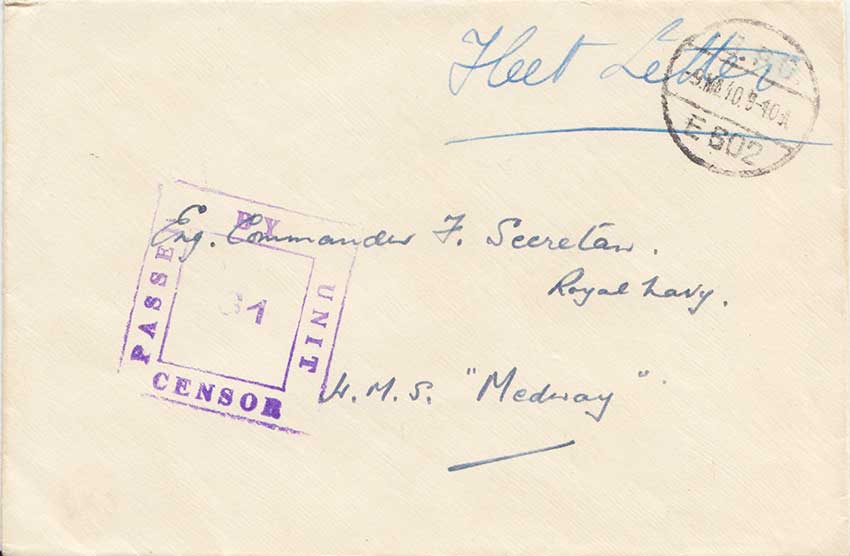 Fleet Letter
E 602
PASSED BY UNIT CENSOR
31
Eng. Commander F. Secretan.
Royal Navy.
H.M.S. "Medway"